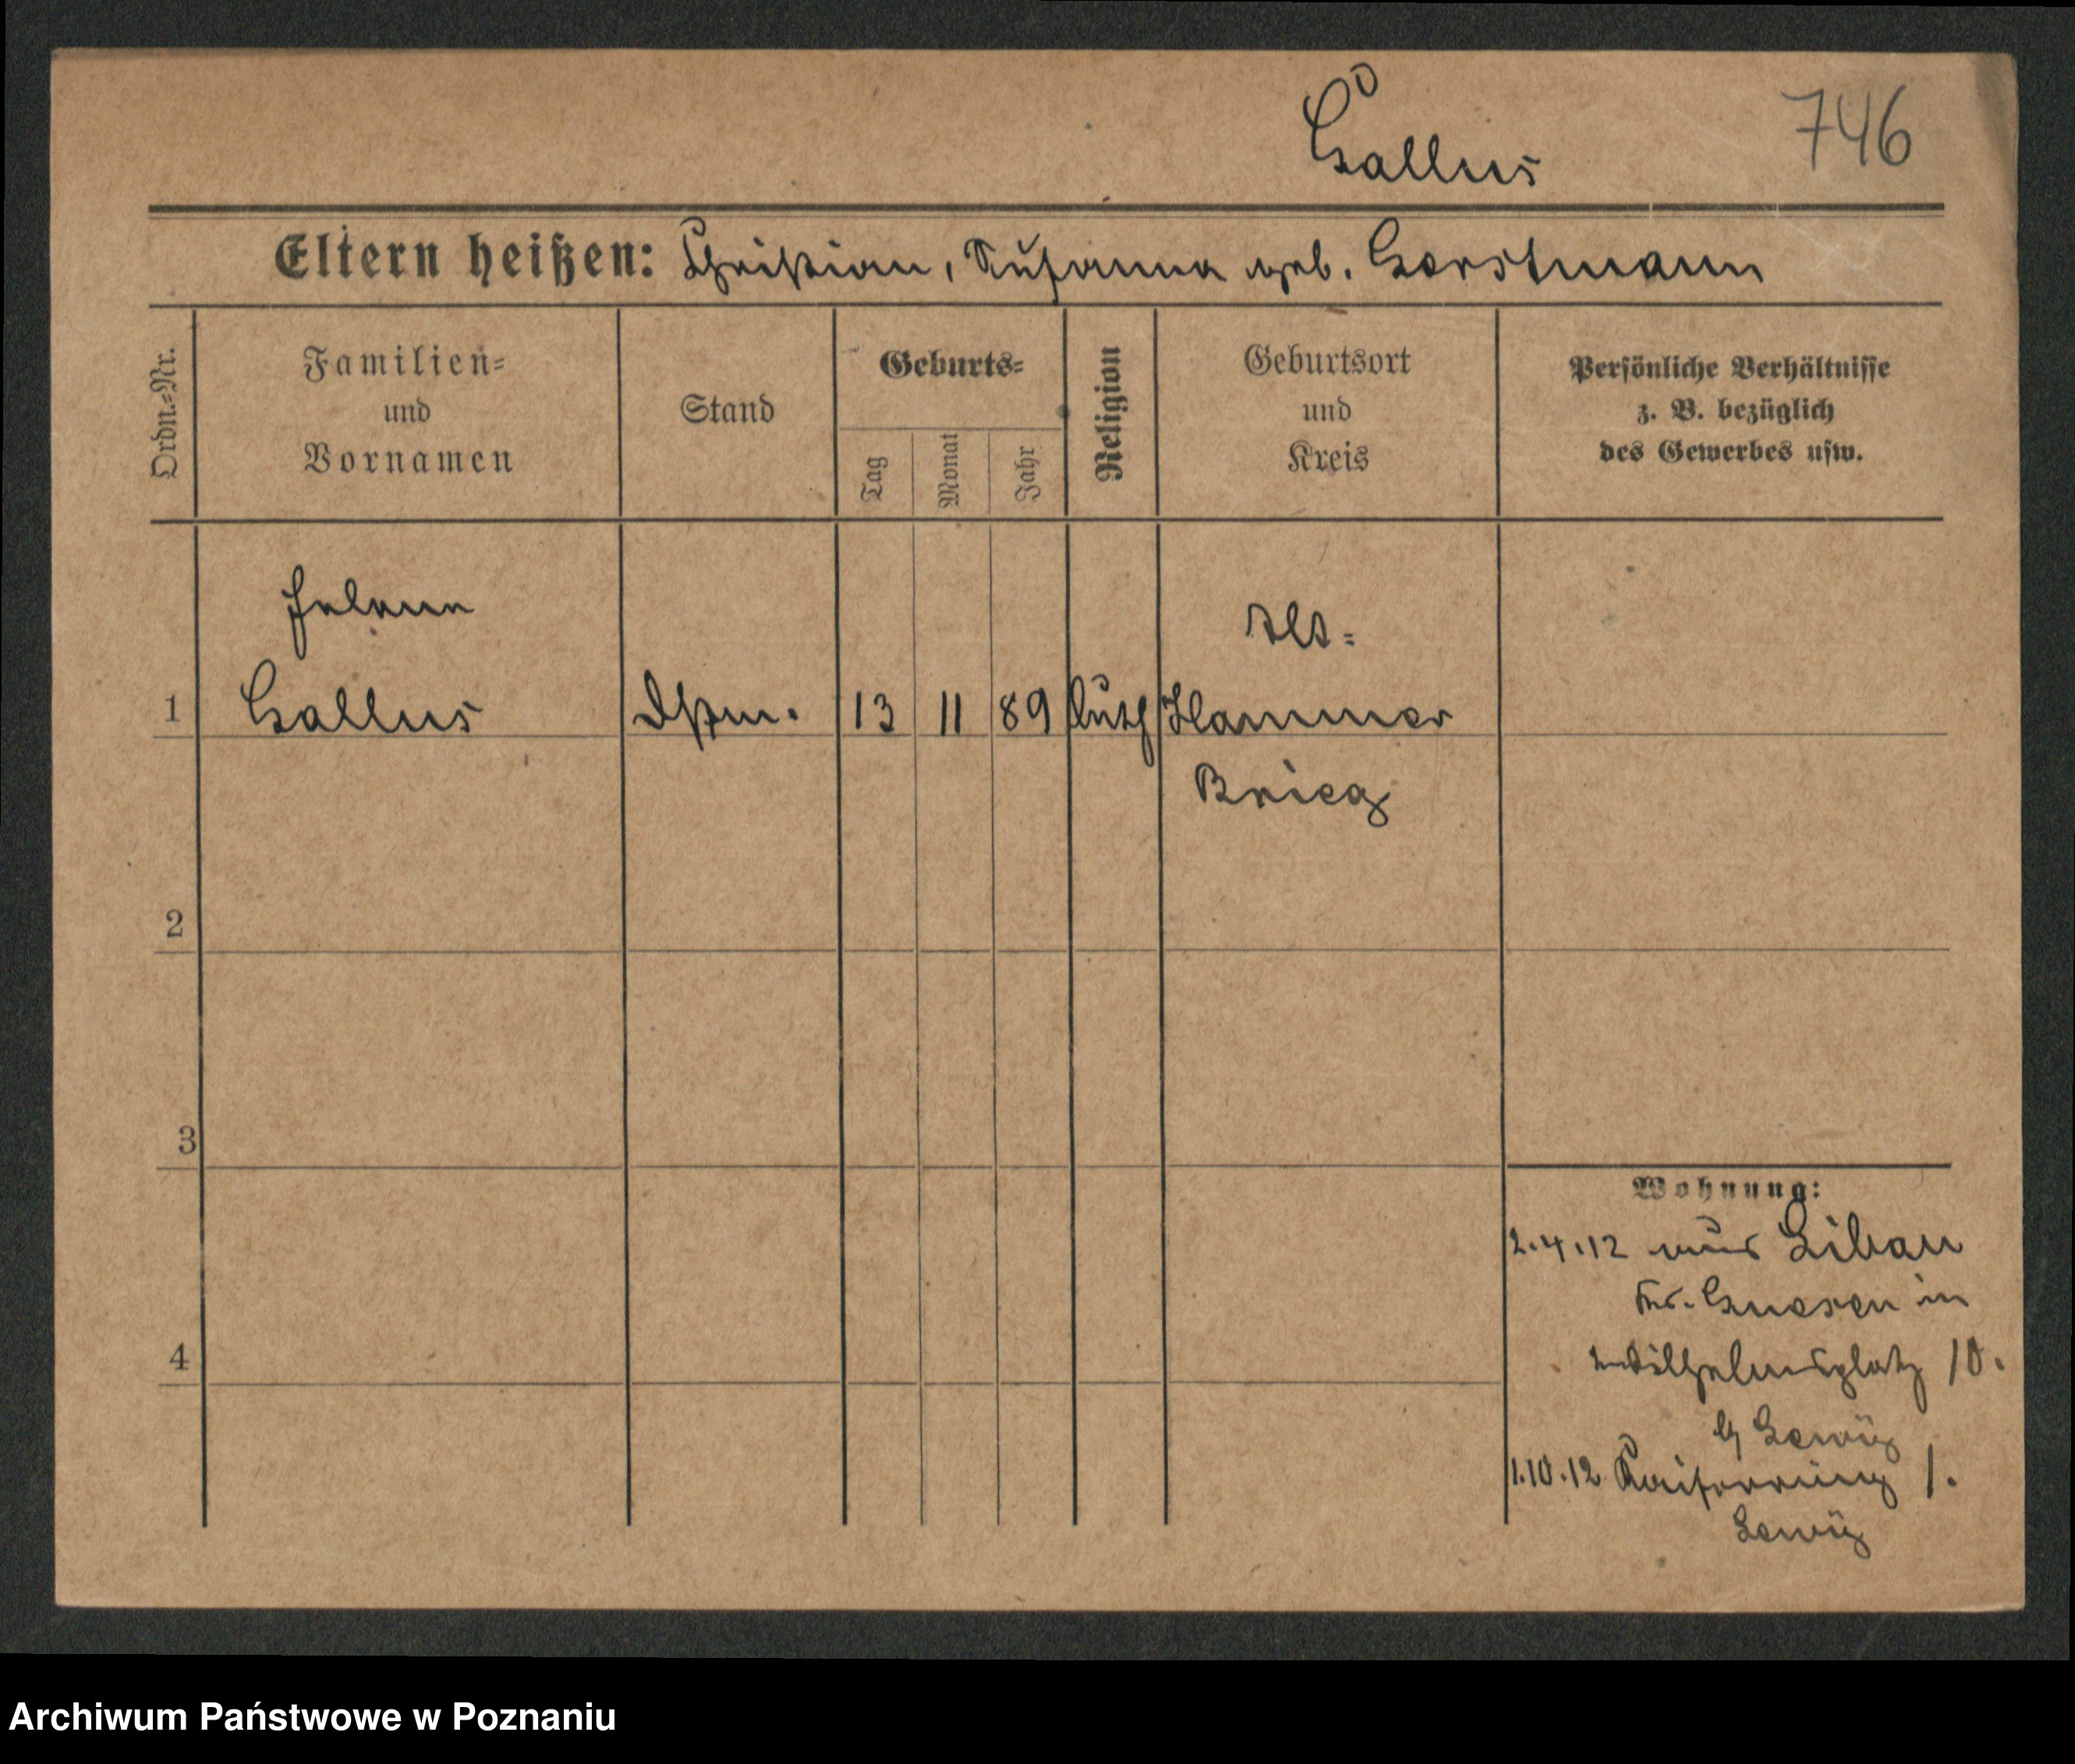 Gallus
746
Eltern heißen: Christian, Susanna geb. Gerstmann
Ordn.=Nr.
Familien=
und
Vornamen
Stand
Geburts=
Tag
Monat
Jahr
Religion
Geburtsort
und
Kreis
Persönliche Verhältnisse
z. B. bezüglich
des Gewerbes usw.
Helene
Alt=
1 Gallus 13 11 89 luth Hammer
Brieg
2
3
4
Wohnung:
2.4.12 aus Libau
Kr. Gnesen in
Wilhelmsplatz 10.
1.10.12 Kaiserring 1.
Archiwum Państwowe w Poznaniu